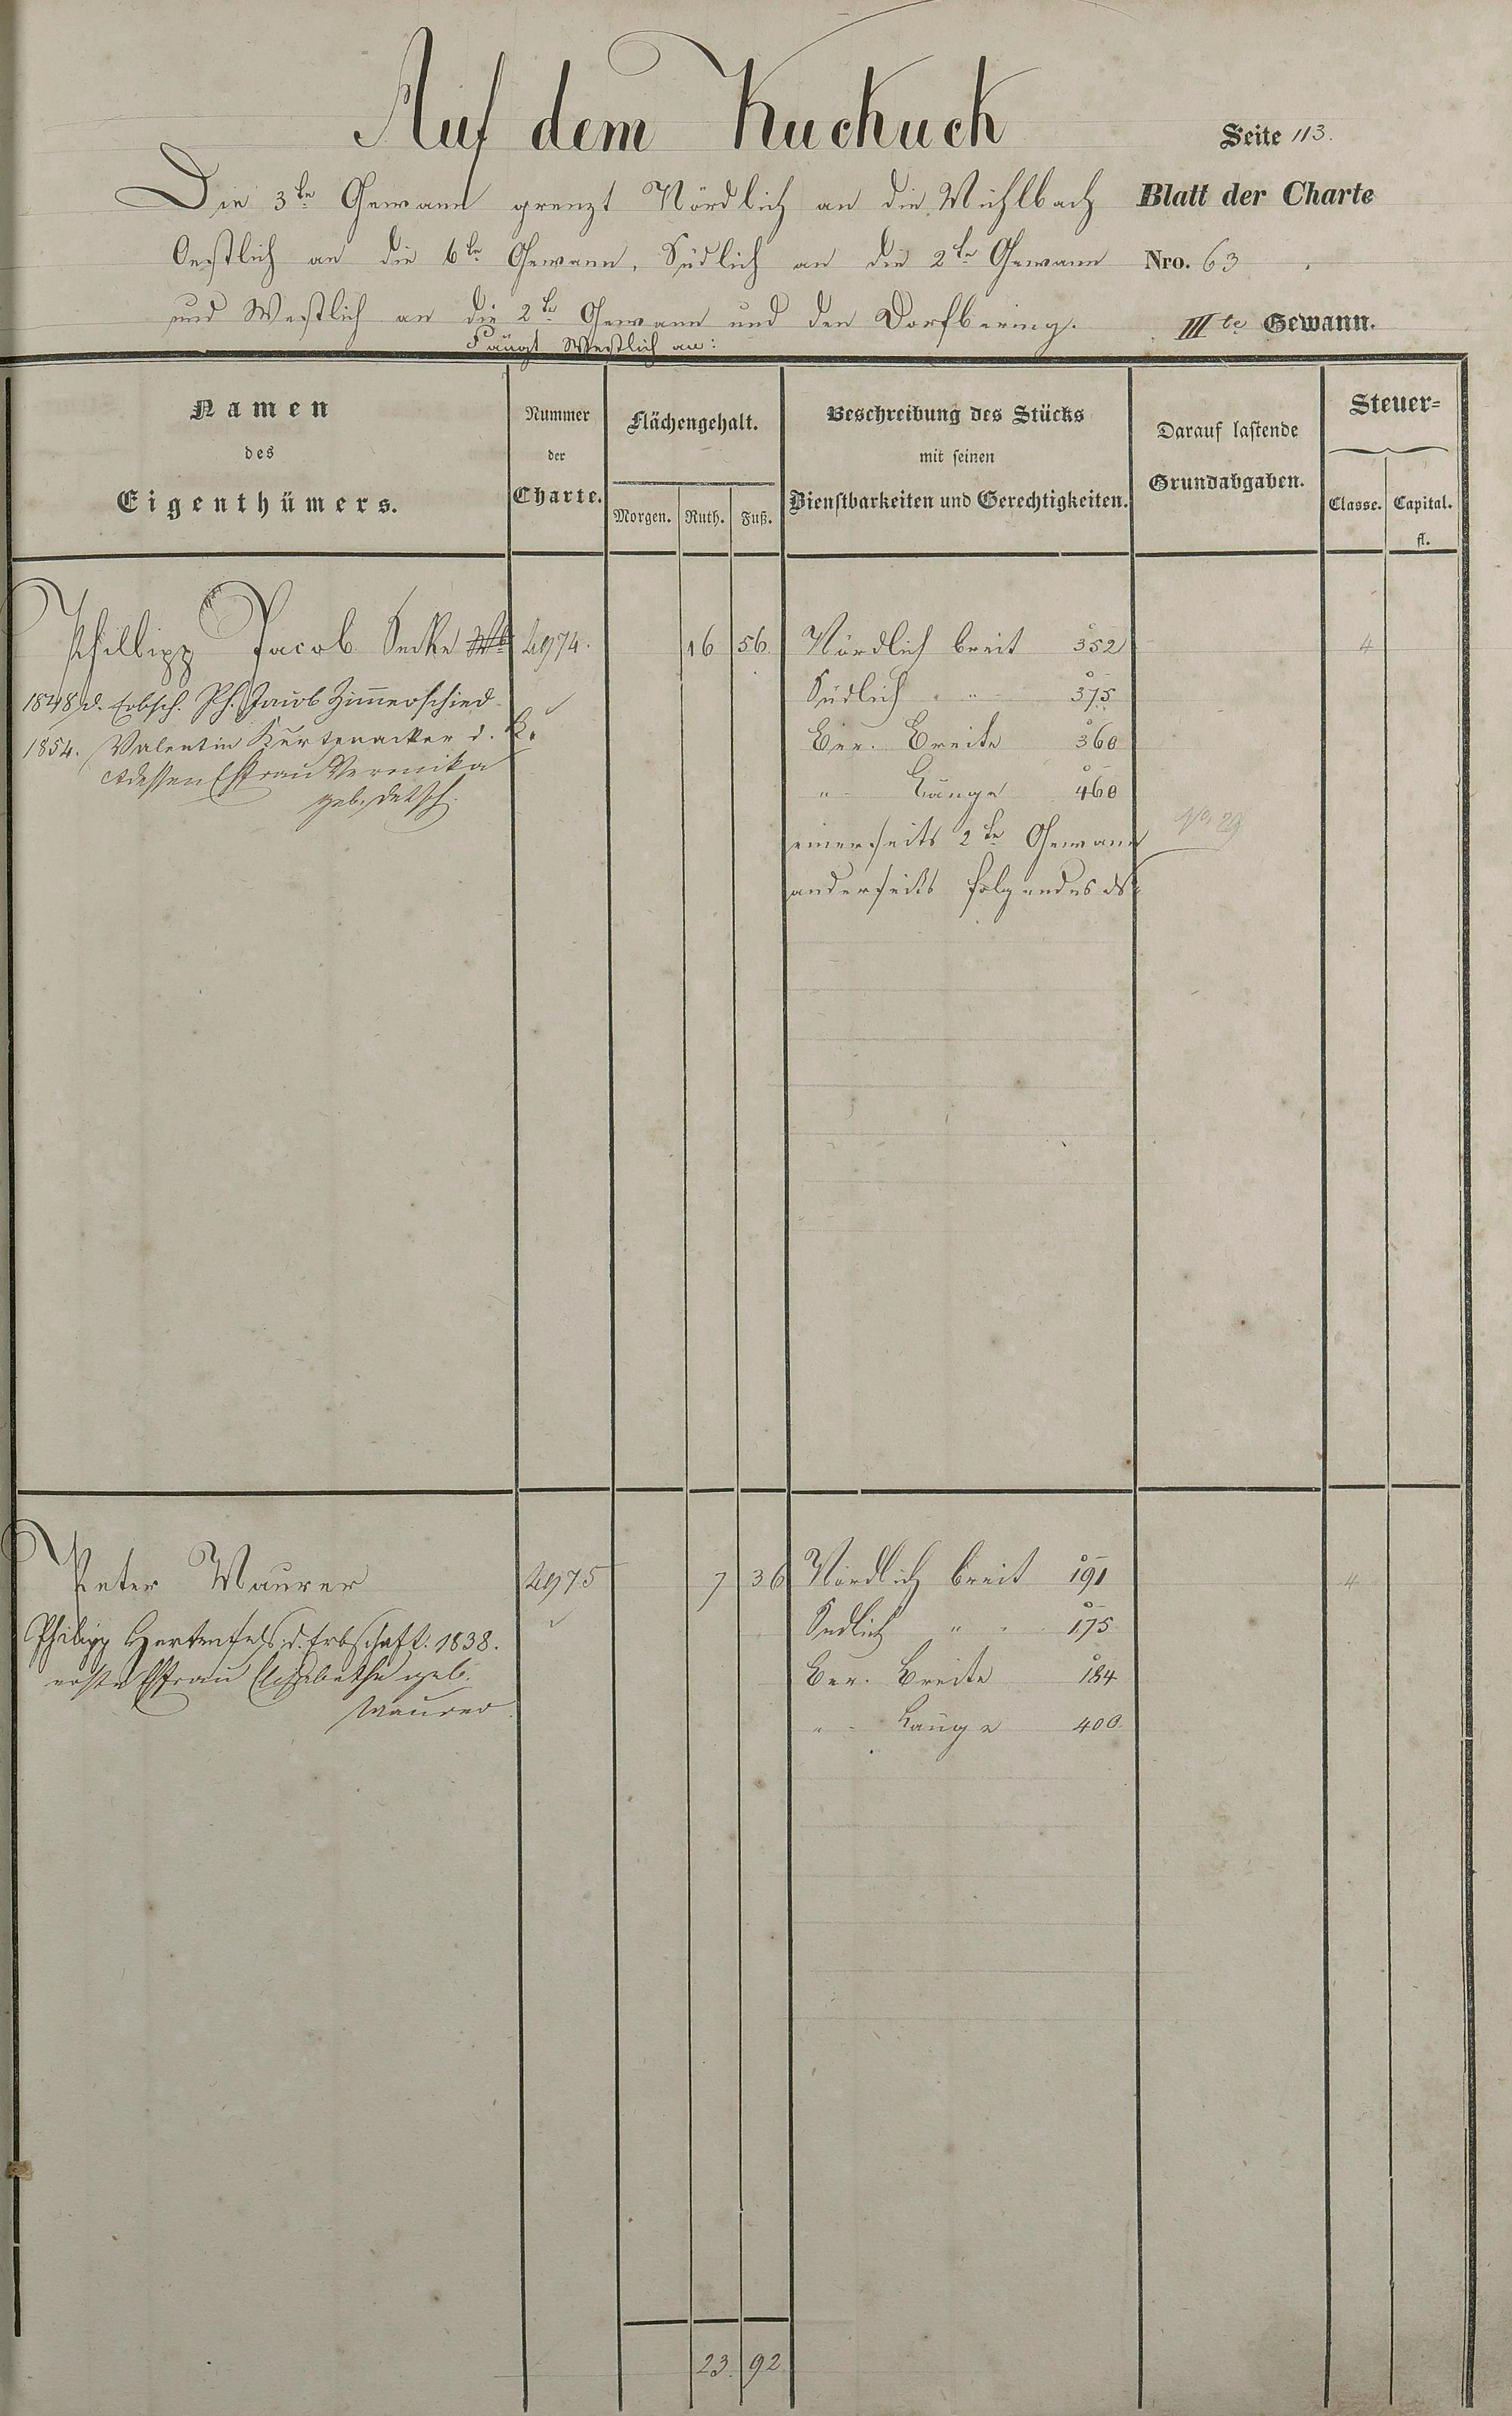 Auf dem Kuckuck
Seite 113.
Die 3te Gewann grenzt Nördlich an die Mühlbach
Blatt der Charte
Oestlich an die 6te Gewann, Südlich an die 2te Gewann
Nro. 63
und Westlich an die 2te Gewann und den Dorfbering.
IIIte Gewann.
Fängt Westlich an:
Namen
des
Eigenthümers.
Nummer
der
Charte.
Flächengehalt.
Morgen. Ruth. Fuß.
Beschreibung des Stücks
mit seinen
Dienstbarkeiten und Gerechtigkeiten.
Darauf lastende
Grundabgaben.
Steuer=
Classe. Capital.
fl.
Philipp Jacob 4974. 16 56. Nördlich breit 352 4
1848 d. Erbsch. Ph. Jacob Zimerschied
Südlich " 375
1854. Valentin Kurtenacker d. K.
Ber. Breite 360
dessen Ehfrau Veronika
geb.
" Länge 460
einerseits 2te Gewann
anderseits folgendes
Peter Maurer 4975 7 36 Nördlich breit 191 4
Philipp Hertenfels d. Erbschaft. 1838.
Südlich " 175
erste Ehfrau Elisabetha geb.
Maurer
Ber. Breite 184
" Länge 400.
23. 92